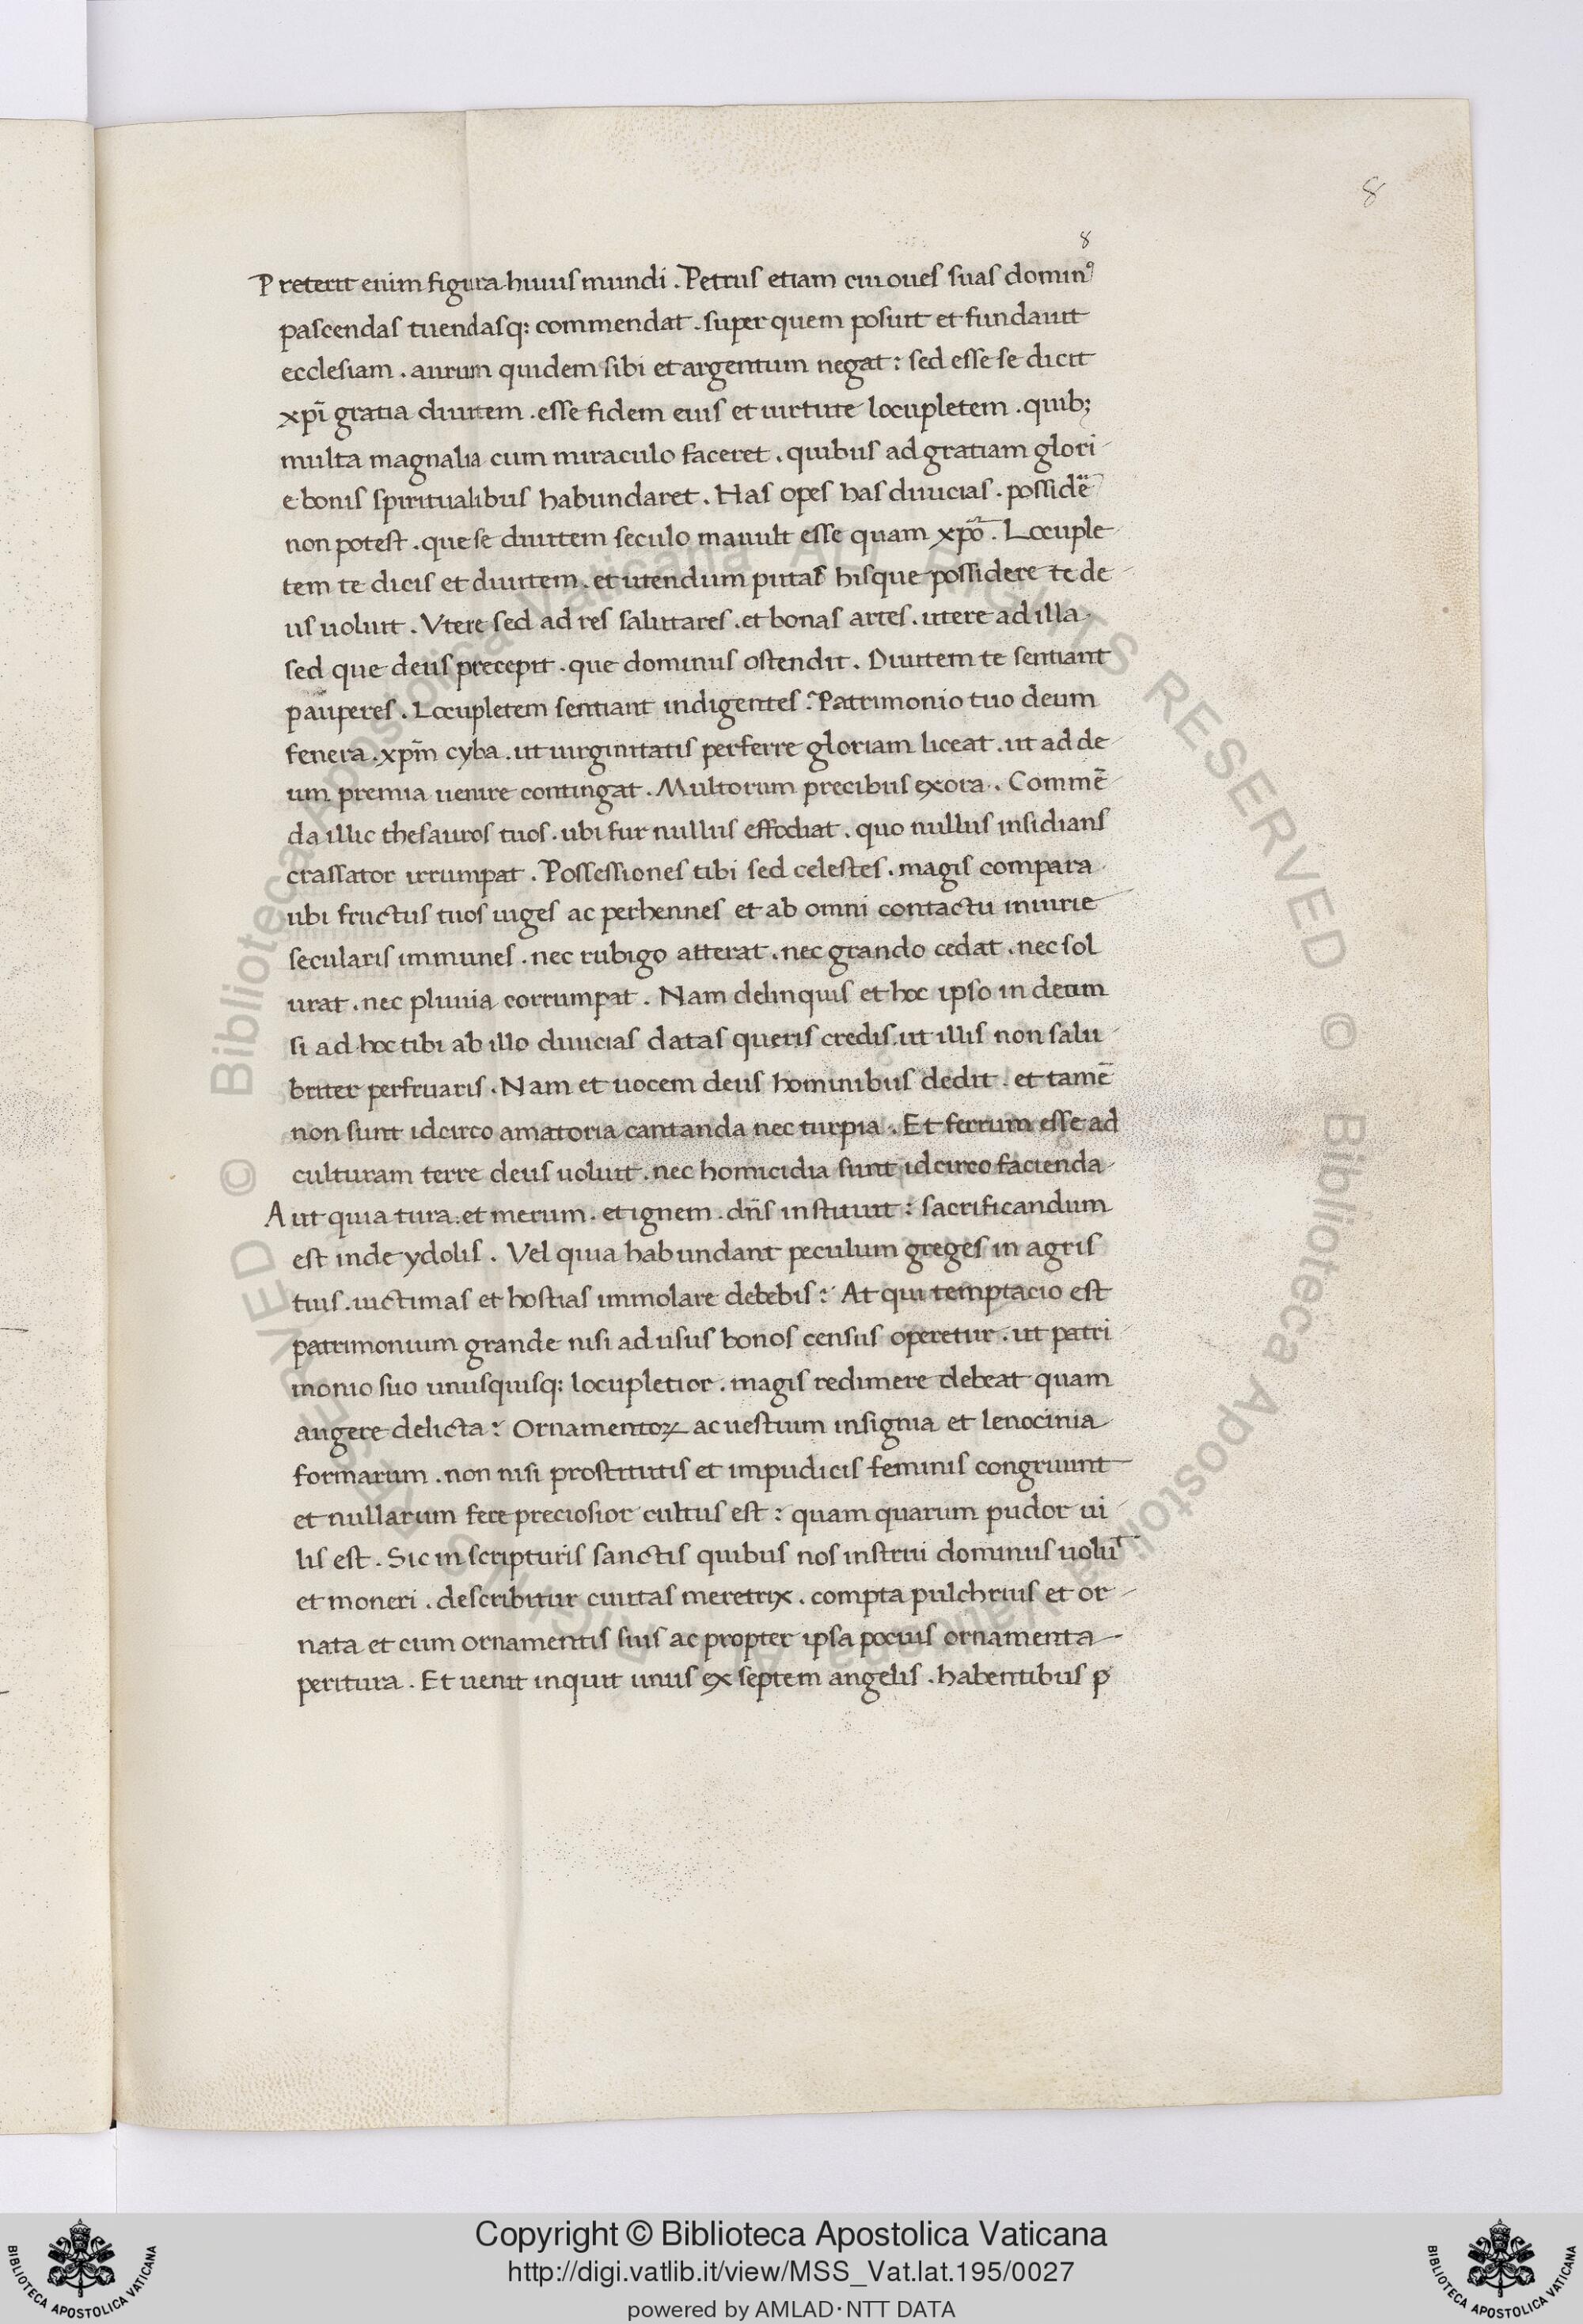 8
8
Preterit enim figura huius mundi . Petrus etiam cui oues suas domin⁹
pascendas tuendasq: commendat . super quem posuit et fundauit
ecclesiam . aurum quidem sibi et argentum negat : sed esse se dicit
xpī gratia diuitem . esse fidem eius et uirtute locupletem . quib;
multa magnalia cum miraculo faceret . quibus ad gratiam glori
e bonis spiritualibus habundaret . Has opes has diuicias . possidē
non potest . que se diuitem seculo mauult esse quam xpō . Locuple
tem te dicis et diuitem . et utendum putas hisque possidere te de
us uoluit . Vtere sed ad res salutares . et bonas artes . utere ad illa
sed que deus precepit . que dominus ostendit . Diuitem te sentiant
pauperes . Locupletem sentiant indigentes . Patrimonio tuo deum
fenera . xpm̄ cyba . ut uirginitatis perferre gloriam liceat . ut ad de
um premia uenire contingat . Multorum precibus exora . Commē
da illic thesauros tuos . ubi fur nullus effodiat . quo nullus insidians
crassator irrumpat . Possessiones tibi sed celestes . magis compara
ubi fructus tuos iuges ac perhennes et ab omni contactu iniurie
secularis immunes . nec rubigo atterat . nec grando cedat . nec sol
urat . nec pluuia corrumpat . Nam delinquis et hoc ipso in deum
si ad hoc tibi ab illo diuicias datas queris credis . ut illis non salu
briter perfruaris . Nam et uocem deus hominibus dedit . et tamē
non sunt idcirco amatoria cantanda nec turpia . Et ferrum esse ad
culturam terre deus uoluit . nec homicidia sunt idcirco facienda
Aut quia tura . et merum . et ignem . dn̄s instituit : sacrificandum
est inde ydolis . Vel quia habundant peculum greges in agris
tuis . uictimas et hostias immolare debebis : At qui temptacio est
patrimonium grande nisi ad usus bonos census operetur . ut patri
monio suo unusquisq: locupletior . magis redimere debeat quam
augere delicta : Ornamentoꝝ ac uestium insignia et lenocinia
formarum . non nisi prostitutis et impudicis feminis congruunt
et nullarum fere preciosior cultus est : quam quarum pudor ui
lis est . Sic in scripturis sanctis quibus nos instrui dominus uolu͛t
et moneri . describitur ciuitas meretrix . compta pulchrius et or
nata et cum ornamentis suis ac propter ipsa pocius ornamenta
peritura . Et uenit inquit unus ex septem angelis . habentibus p
© Biblioteca Apostolica Vaticana ALL RIGHTS RESERVED © Biblioteca Apostolica Vaticana ALL RIGHTS RESERVED
Copyright © Biblioteca Apostolica Vaticana
http://digi.vatlib.it/view/MSS_Vat.lat.195/0027
powered by AMLAD·NTT DATA
BIBLIOTECA APOSTOLICA VATICANA
BIBLIOTECA APOSTOLICA VATICANA